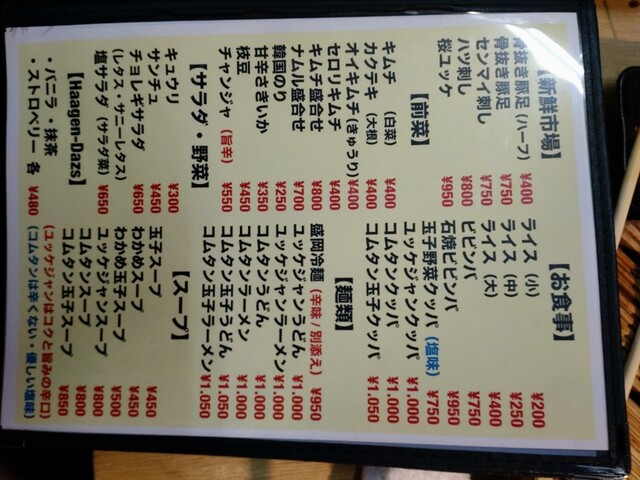 【新鮮市場】
骨抜き豚足(ハーフ) ¥400
骨抜き豚足 ¥750
センマイ刺し ¥750
ハツ刺し ¥800
桜ユッケ ¥950
【前菜】
キムチ (白菜) ¥400
カクテキ (大根) ¥400
オイキムチ(きゅうり) ¥400
セロリキムチ ¥400
キムチ盛合せ ¥800
ナムル盛合せ ¥700
韓国のり ¥250
甘辛さきいか ¥350
枝豆 ¥450
チャンジャ (旨辛) ¥550
【サラダ・野菜】
キュウリ ¥300
サンチュ ¥450
チョレギサラダ ¥650
(レタス・サニーレタス)
塩サラダ (サラダ菜) ¥650
【Haagen-Dazs】
・バニラ ・抹茶
・ストロベリー 各 ¥480
【お食事】
ライス (小) ¥200
ライス (中) ¥250
ライス (大) ¥400
ビビンバ ¥750
石焼ビビンバ ¥950
玉子野菜クッパ (塩味) ¥750
ユッケジャンクッパ ¥1.000
コムタンクッパ ¥1.000
コムタン玉子クッパ ¥1.050
【麺類】
盛岡冷麺 (辛味/別添え) ¥950
ユッケジャンうどん ¥1.000
ユッケジャンラーメン ¥1.000
コムタンうどん ¥1.000
コムタンラーメン ¥1.000
コムタン玉子うどん ¥1.050
コムタン玉子ラーメン ¥1.050
【スープ】
玉子スープ ¥450
わかめスープ ¥450
わかめ玉子スープ ¥500
ユッケジャンスープ ¥800
コムタンスープ ¥800
コムタン玉子スープ ¥850
(ユッケジャンはコクと旨みの辛口)
(コムタンは辛くない・優しい塩味)